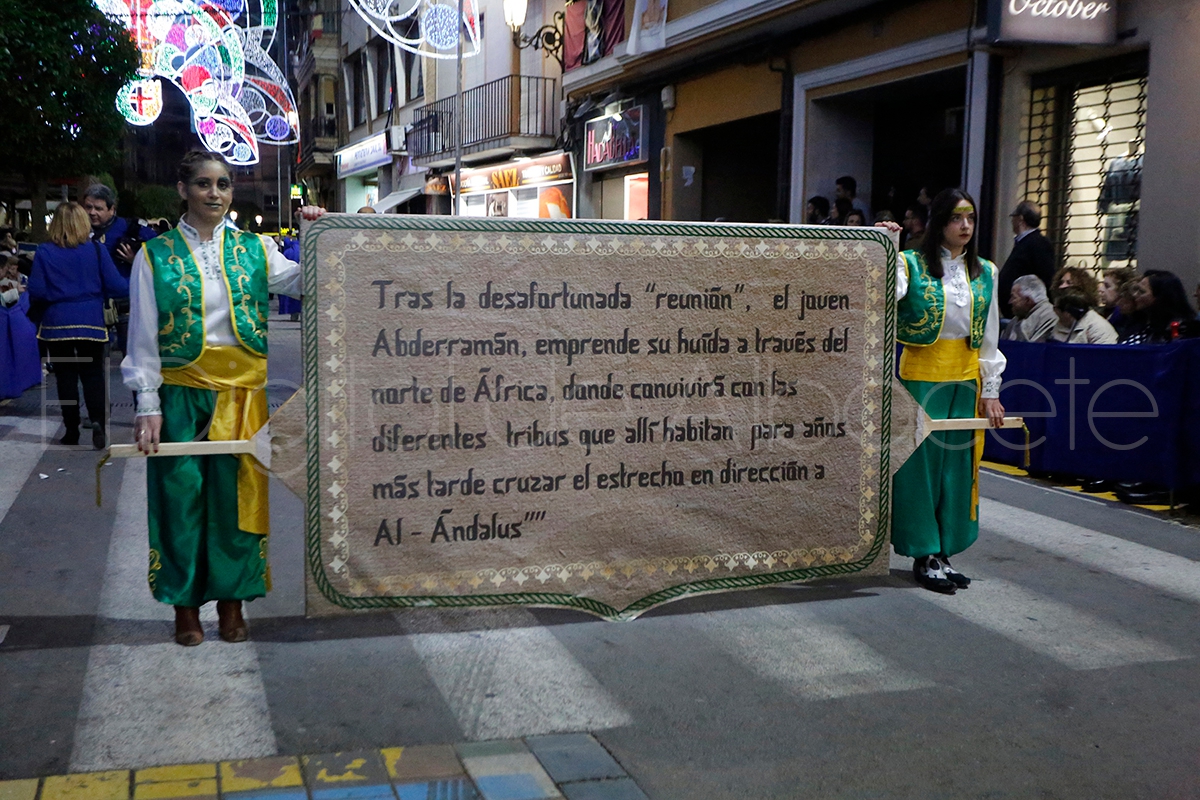 October
Tras la desafortunada "reunión", el joven
Abderramán, emprende su huída a través del
norte de África, donde convivirá con las
diferentes tribus que allí habitan para años
más tarde cruzar el estrecho en dirección a
Al - Ándalus""
El Digital de Albacete